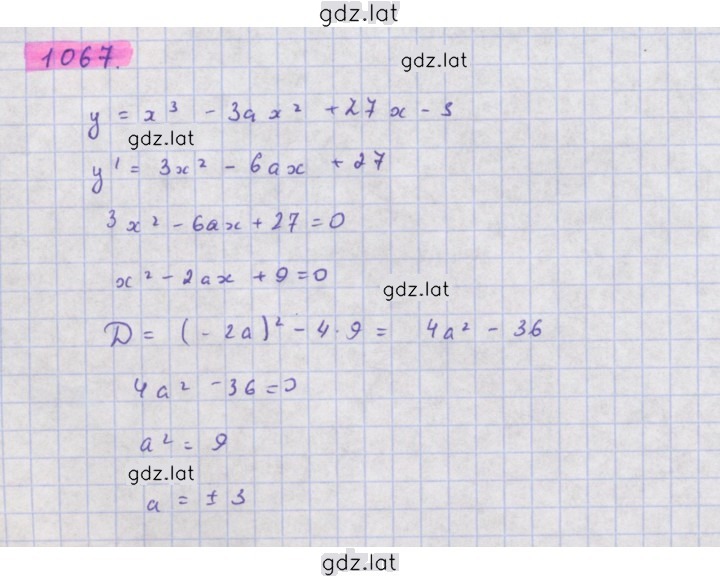 gdz.lat
1067.
gdz.lat
y = x³ - 3ax² + 27x - 5
gdz.lat
y' = 3x² - 6ax + 27
3x² - 6ax + 27 = 0
x² - 2ax + 9 = 0
gdz.lat
D = (-2a)² - 4·9 = 4a² - 36
4a² - 36 = 0
a² = 9
gdz.lat
a = ± 3
gdz.lat